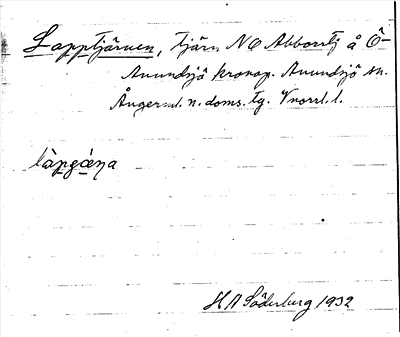 Lapptjärnen, tjärn NO Abborrtj å Ö-
Anundsjö kronop. Anundsjö sn.
Ångerml. n. doms. tg. Vnorrl. l.
làpgǽṇa
H A Söderberg 1932